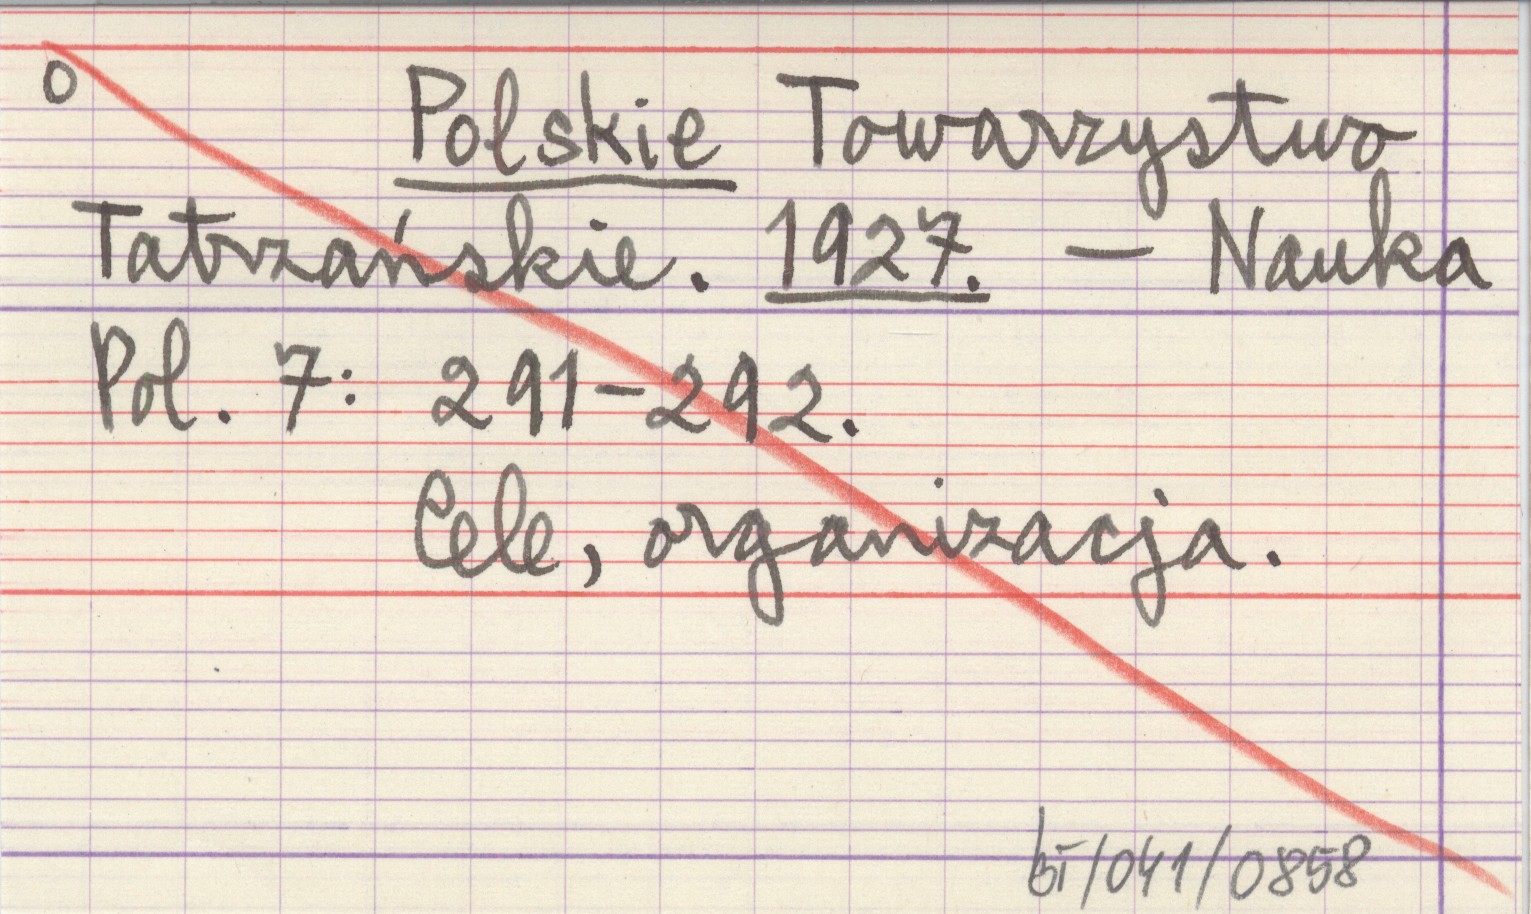 O
Polskie Towarzystwo
Tatrzańskie. 1927. — Nauka
Pol. 7: 291-292.
Cele, organizacja.
bł/041/0858